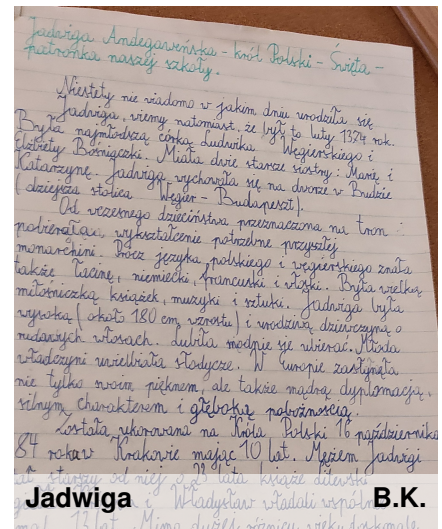 Jadwiga Andegaweńska - król Polski - Święta -
patronka naszej szkoły.
Niestety nie wiadomo w jakim dniu urodziła się
Jadwiga, wiemy natomiast, że był to luty 1374 rok.
Była najmłodszą córką Ludwika Węgierskiego i
Elżbiety Bośniaczki. Miała dwie starsze siostry: Marię i
Katarzynę. Jadwiga wychowała się na dworze w Budzie
(dzisiejsza stolica Węgier - Budapeszt).
Od wczesnego dzieciństwa przeznaczona na tron
pobierała wykształcenie potrzebne przyszłej
monarchini. Prócz języka polskiego i węgierskiego znała
także łacinę, niemiecki, francuski i włoski. Była wielką
miłośniczką książek, muzyki i sztuki. Jadwiga była
wysoką (około 180 cm wzrostu) i urodziwą dziewczyną o
rudawych włosach. Lubiła modnie się ubierać. Młoda
władczyni uwielbiała słodycze. W Europie zasłynęła
nie tylko swoim pięknem, ale także mądrą dyplomacją,
silnym charakterem i głęboką pobożnością.
Została ukoronowana na Króla Polski 16 października
84 roku w Krakowie mając 10 lat. Mężem Jadwigi
starszy od niej o 23 lata książę litewski
Jadwiga B.K.
i Władysław władali wspóln
13 lat. Mimo dużej różnicy wieku doskonale